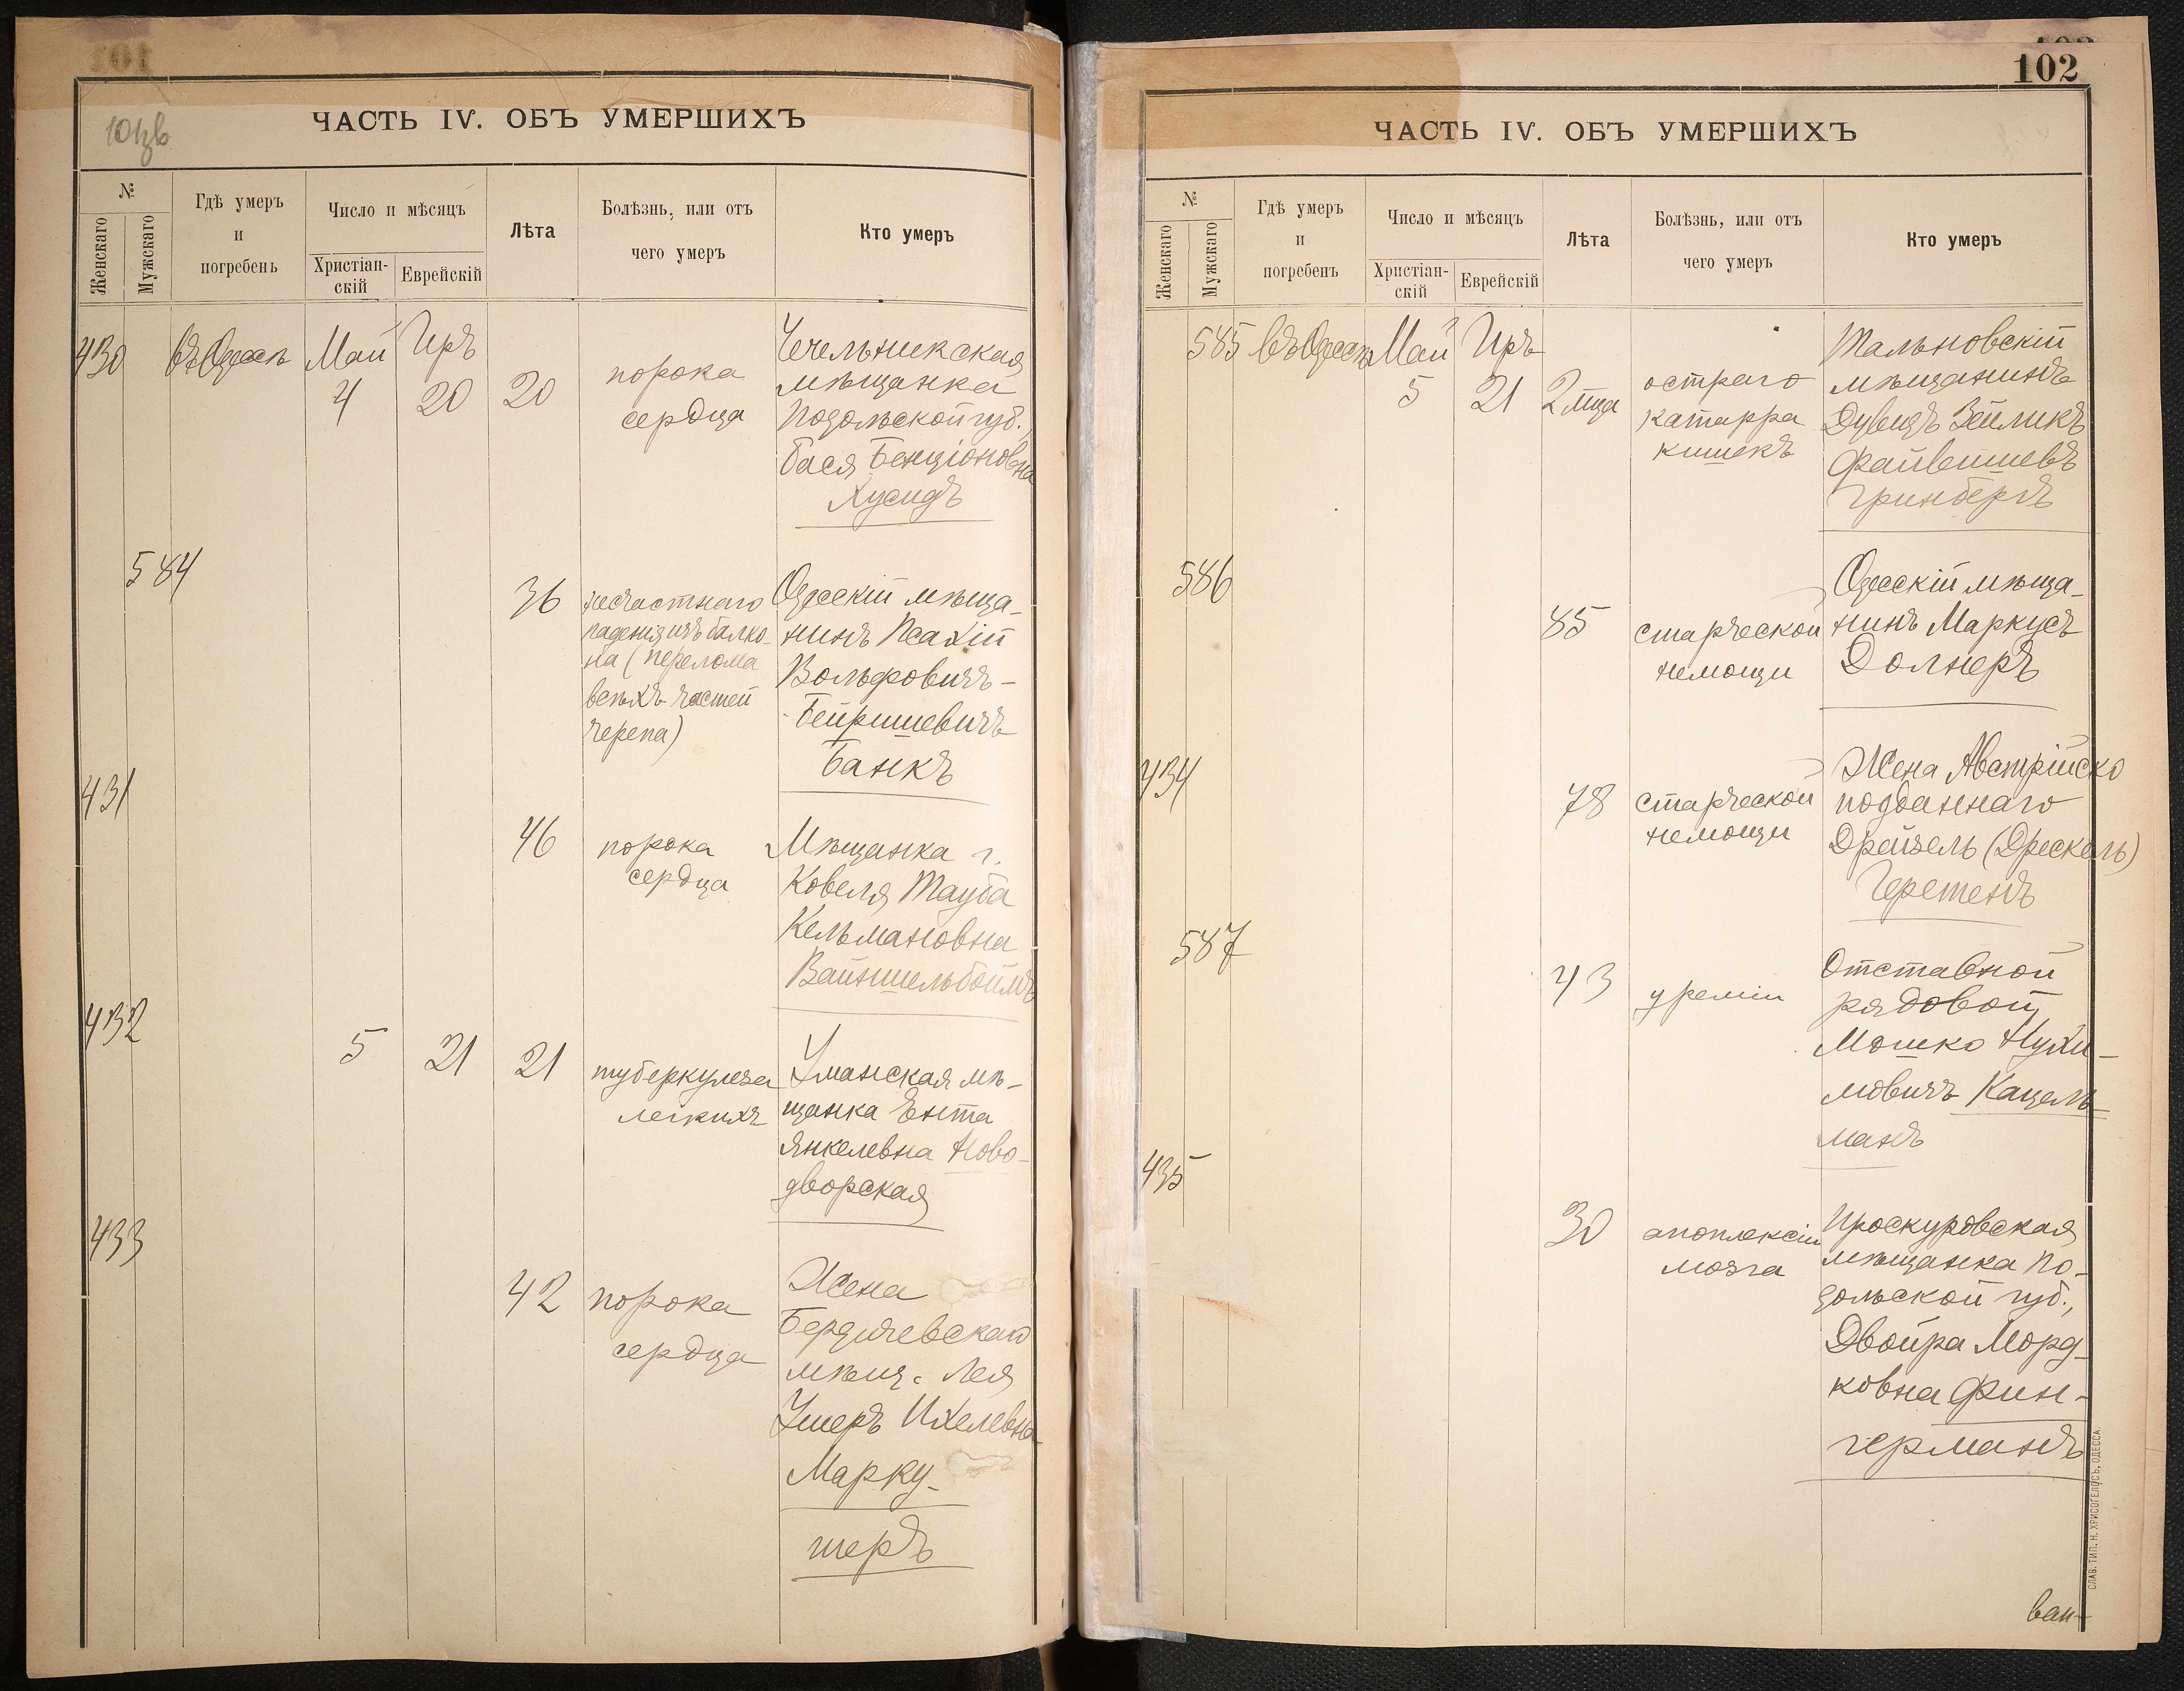 ЧАСТЬ IV. ОБЪ УМЕРШИХЪ
№
Женскаго
Мужскаго
Гдѣ умеръ
и
погребенъ
Число и мѣсяцъ
Христіан-
скій
Еврейскій
Лѣта
Болѣзнь, или отъ
чего умеръ
Кто умеръ
430
въ Одессѣ
Май
4
Иръ
20
20
порока
сердца
Чечельникская
мѣщанка
Подольской губ.,
Бася Бенціоновна
Хусидъ
584
36
несчастнаго
паденія изъ балко-
на (перелома
всѣхъ частей
черепа)
Одесскій мѣща-
нинъ Псахій
Вольфовичъ-
-Бейришевичъ
Банкъ
431
46
порока
сердца
Мѣщанка г.
Ковеля Тауба
Кельмановна
Вайншельбоймъ
432
5
21
21
туберкулеза
легкихъ
Уманская мѣ-
щанка Ента
Янкелевна Ново-
дворская
433
42
порока
сердца
Жена
Бердичевскаго
мѣщ. Лея
Умеръ Ихелевна
Марку-
шеръ
102
ЧАСТЬ IV. ОБЪ УМЕРШИХЪ
№
Женскаго
Мужскаго
Гдѣ умеръ
и
погребенъ
Число и мѣсяцъ
Христіан-
скій
Еврейскій
Лѣта
Болѣзнь, или отъ
чего умеръ
Кто умеръ
585
въ Одессѣ
Май
5
Иръ
21
2 мца
остраго
катарра
кишекъ
Тальновскій
мѣщанинъ
Дувидъ Зейликъ
Файвишевъ
Гринбергъ
586
85
старческой
немощи
Одесскій мѣща-
нинъ Маркусъ
Долнеръ
434
78
старческой
немощи
Жена Австрійско
подданнаго
Дрейзель (Дрескель)
Геретенъ
587
43
уреміи
Отставной
рядовой
Мошко Нухи-
мовичъ Кацель-
манъ
435
30
апоплексіи
мозга
Проскуровская
мѣщанка По-
дольской губ.,
Двойра Морд-
ковна Фин-
германъ
СЛАВ. ТИП. Н. ХРИСОГЕЛОСЪ, ОДЕССА.